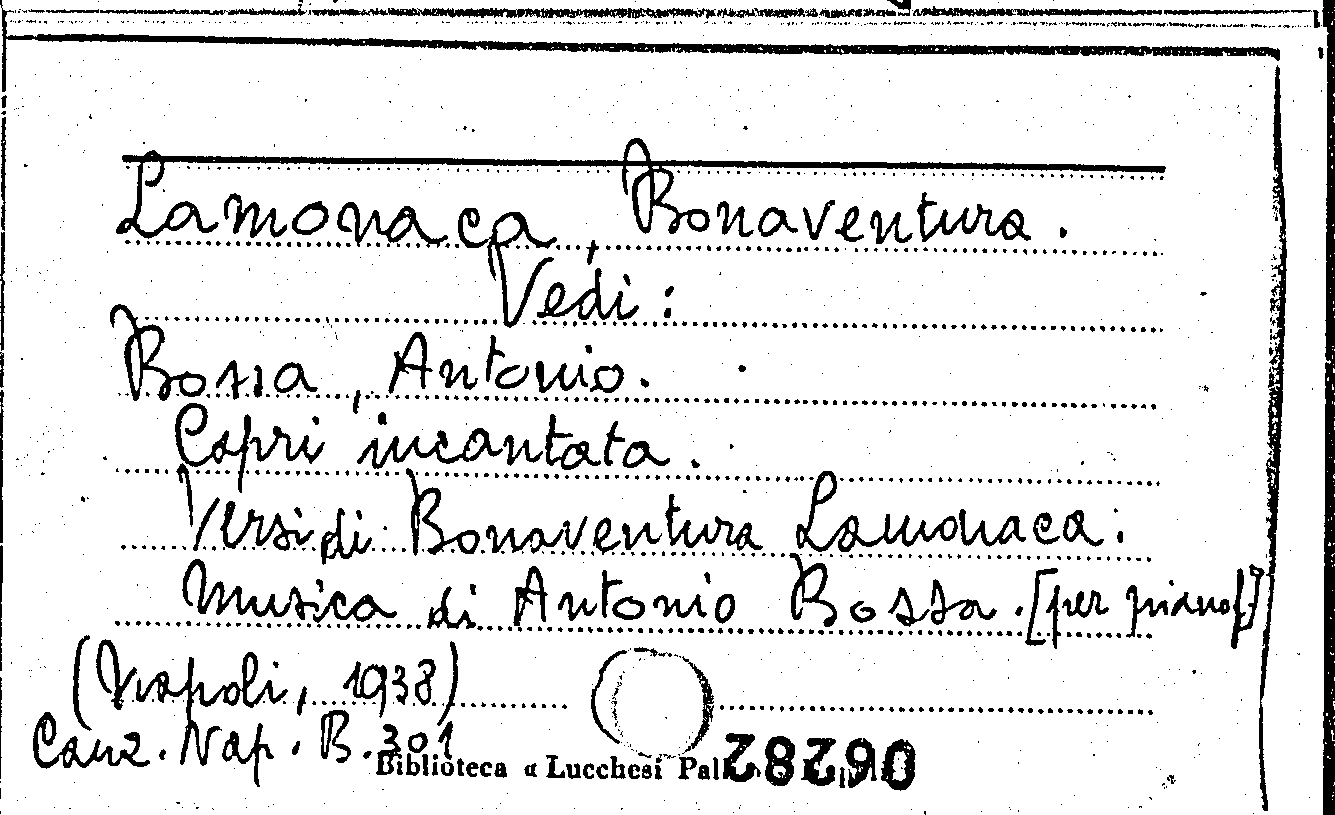 Lamonaca, Bonaventura.
Vedi:
Bossa, Antonio.
Capri incantata.
Versi di Bonaventura Lamonaca.
Musica di Antonio Bossa. [per pianof.]
(Napoli, 1938)
Canz. Nap. B. 301
Biblioteca « Lucchesi Pal
06282